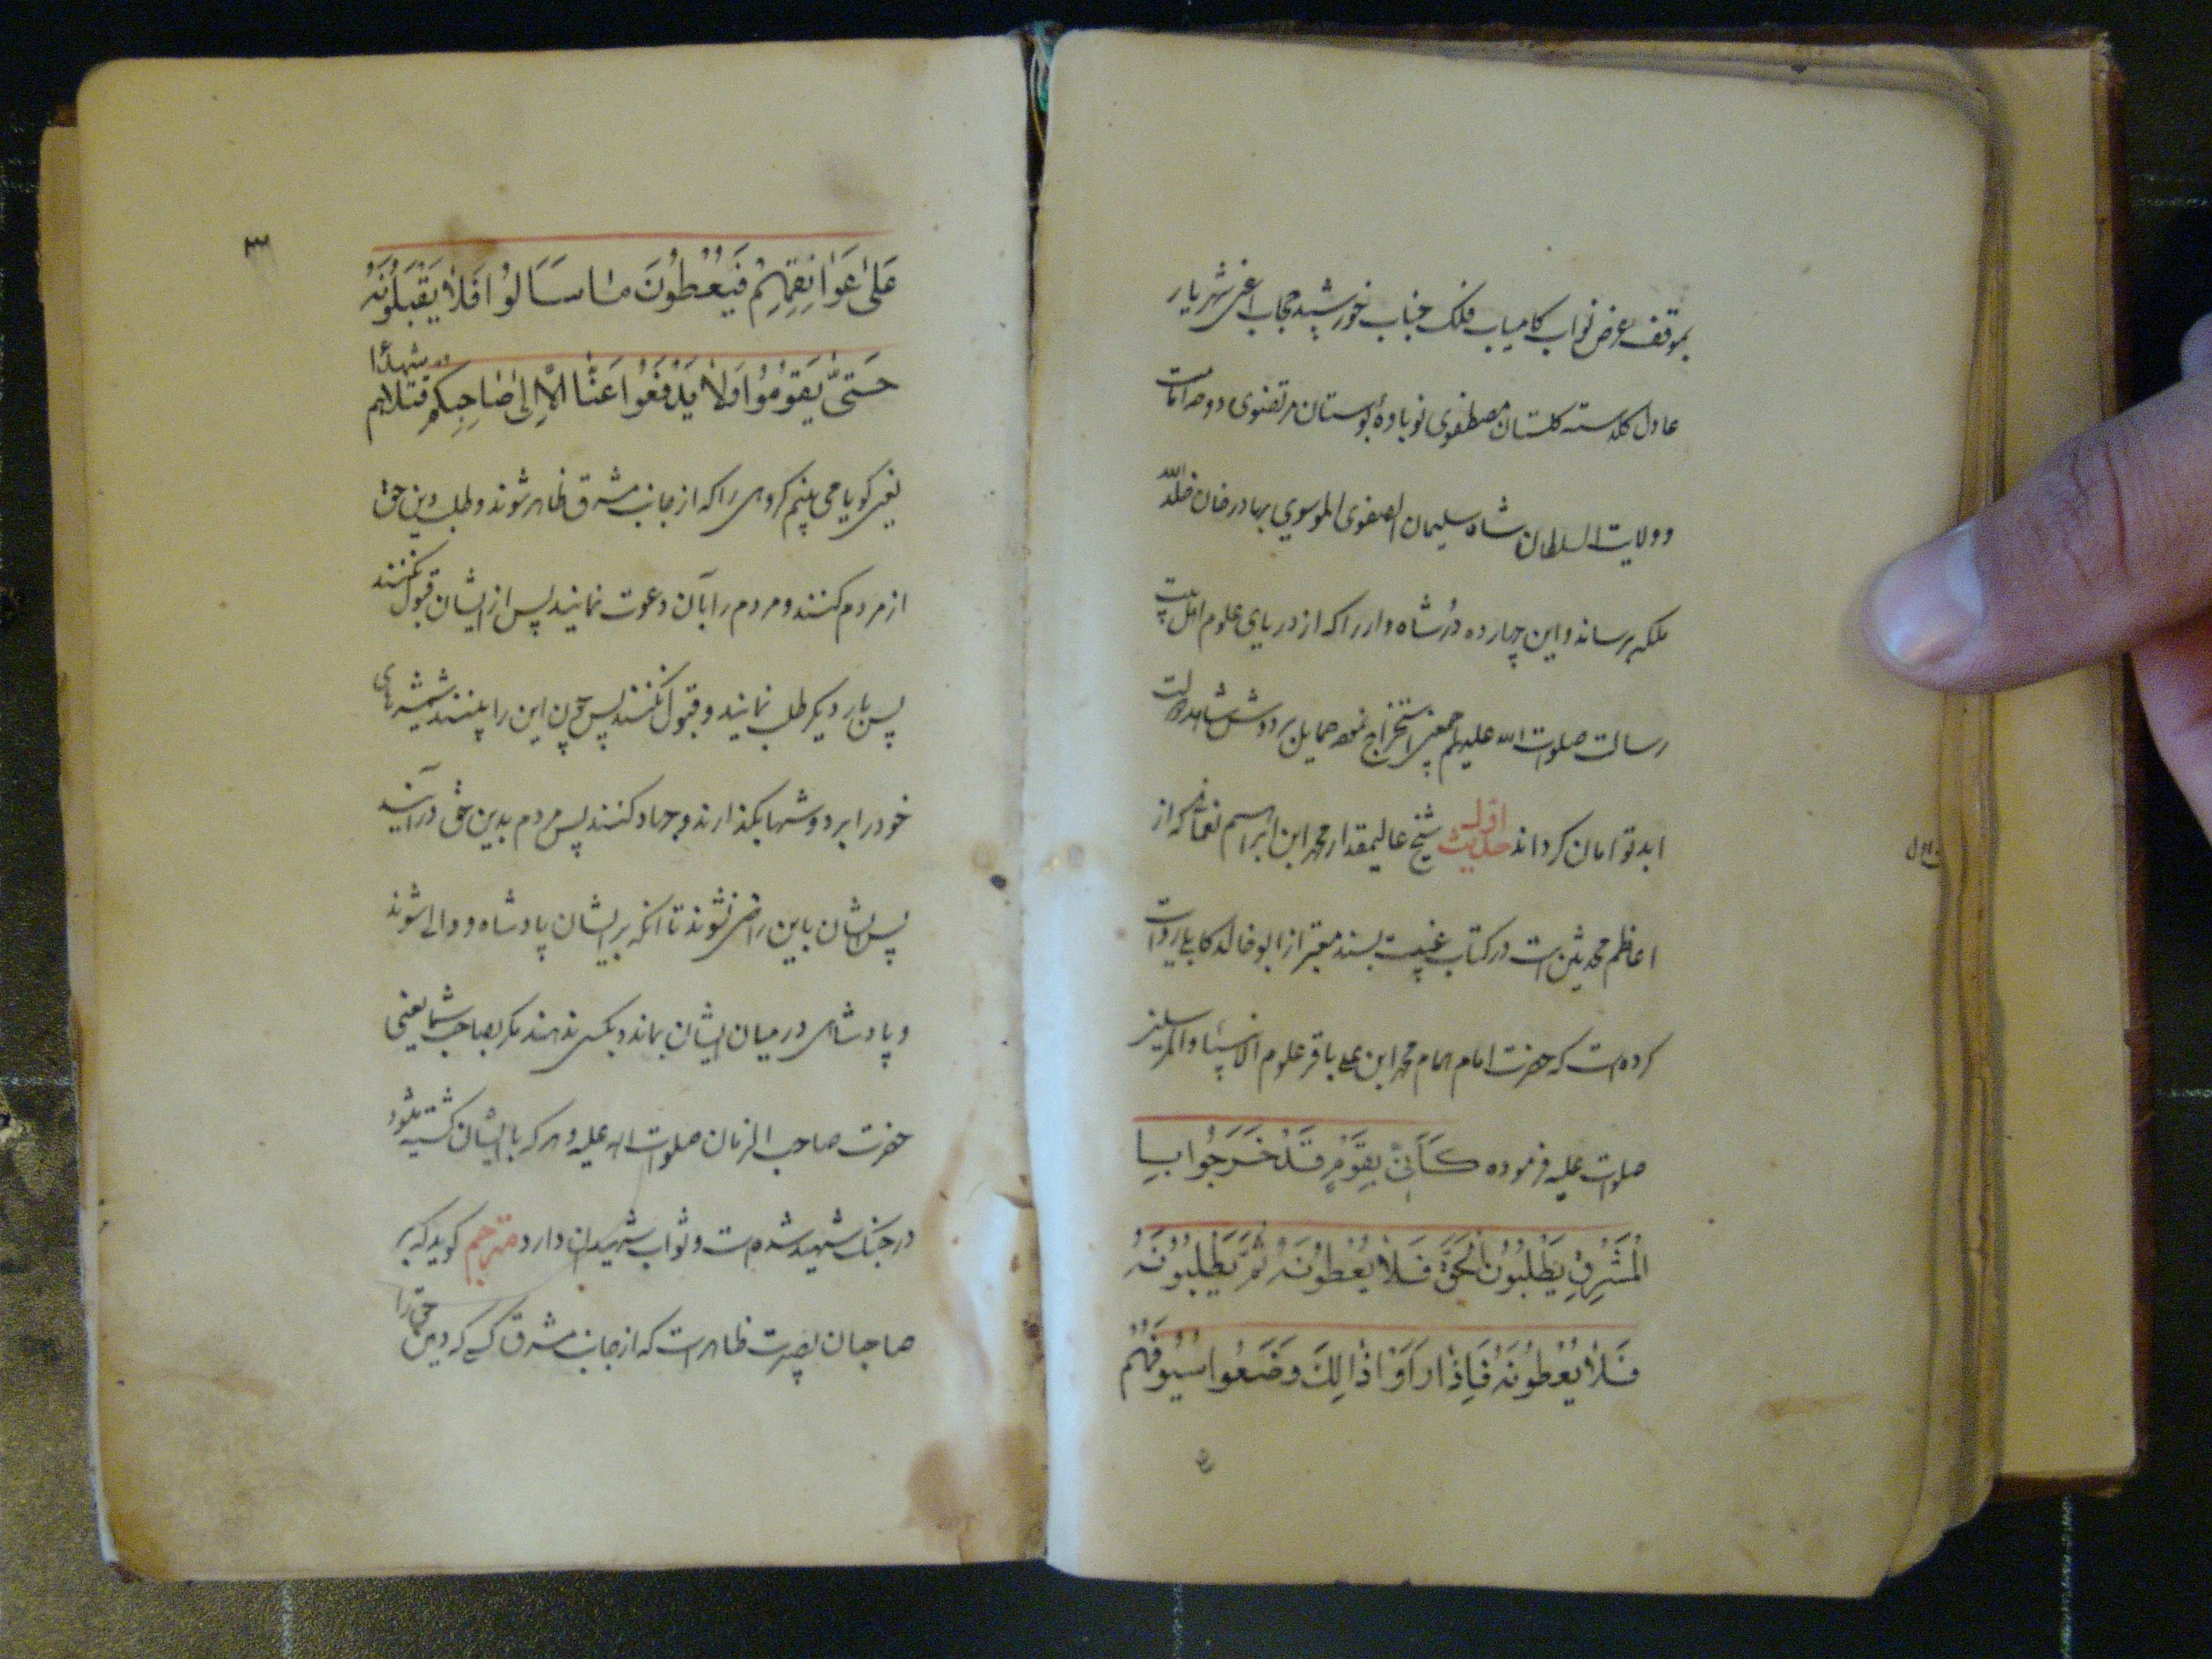 بموقف عرض نواب کامیاب فلک جناب خورشید حجاب اعنی شهریار
عادل کلدسته کلستان مصطفوی نوباوهٔ بوستان مرتضوی دوحه امامت
و ولایت السلطان شاه سلیمان الصفوی الموسوی بهادر خان خلد الله
ملکه برساند و این چهارده درّ شاه وار را که از دریای علوم اهل بیت
رسالت صلوات الله علیهم اجمعین استخراج نموده حمایل بر دوش شاهد دولت
ابد توامان کرداند حدیث اول شیخ عالیمقدار محمد ابن ابراهیم نعمانی که از
اعاظم محدثین است در کتاب غیبت بسند معتبر از ابو خالد کابلی روایت
کرده است که حضرت امام همام محمد ابن علی باقر علوم الانبیاء و المرسلین
صلوات علیه فرموده كَأَنّي بِقَوْمٍ قَدْ خَرَجُوا بِا
لْمَشْرِقِ يَطْلُبُونَ الْحَقَّ فَلَا يُعْطَوْنَهُ ثُمَّ يَطْلُبُونَهُ
فَلَا يُعْطَوْنَهُ فَاِذَا رَاَوْا ذَالِكَ وَضَعُوا سُيُوفَهُمْ
۳
عَلىٰ عَوَاتِقِهِمْ فَيُعْطَوْنَ مَا سَاَلُوا فَلَا يَقْبَلُونَهُ
حَتّىٰ يَقُومُوا وَلَا يَدْفَعُوا عَنْهَا اِلَّا اِلىٰ صَاحِبِكُمْ قَتْلَاهُمْ شهدآ
یعنی کویا می بینم کروهی را که از جانب مشرق ظاهر شوند و طلب دین حق
از مردم کنند و مردم را بآن دعوت نمایند پس از ایشان قبول نکنند
پس بار دیکر طلب نمایند و قبول نکنند پس چون این را بینند شمشیرهای
خود را بر دوشها بکذارند و جهاد کنند پس مردم بدین حق درآیند
پس ایشان باین راضی نشوند تا آنکه بر ایشان پادشاه و والی شوند
و پادشاهی در میان ایشان بماند و بکسی ندهند مکر بصاحب شما یعنی
حضرت صاحب الزمان صلوات الله علیه و هر که با ایشان کشته شود
در جنک شهید شده است و ثواب شهیدان دارد مترجم کوید که بر
صاحبان بصیرت ظاهر است که از جانب مشرق کسی که دین حق را